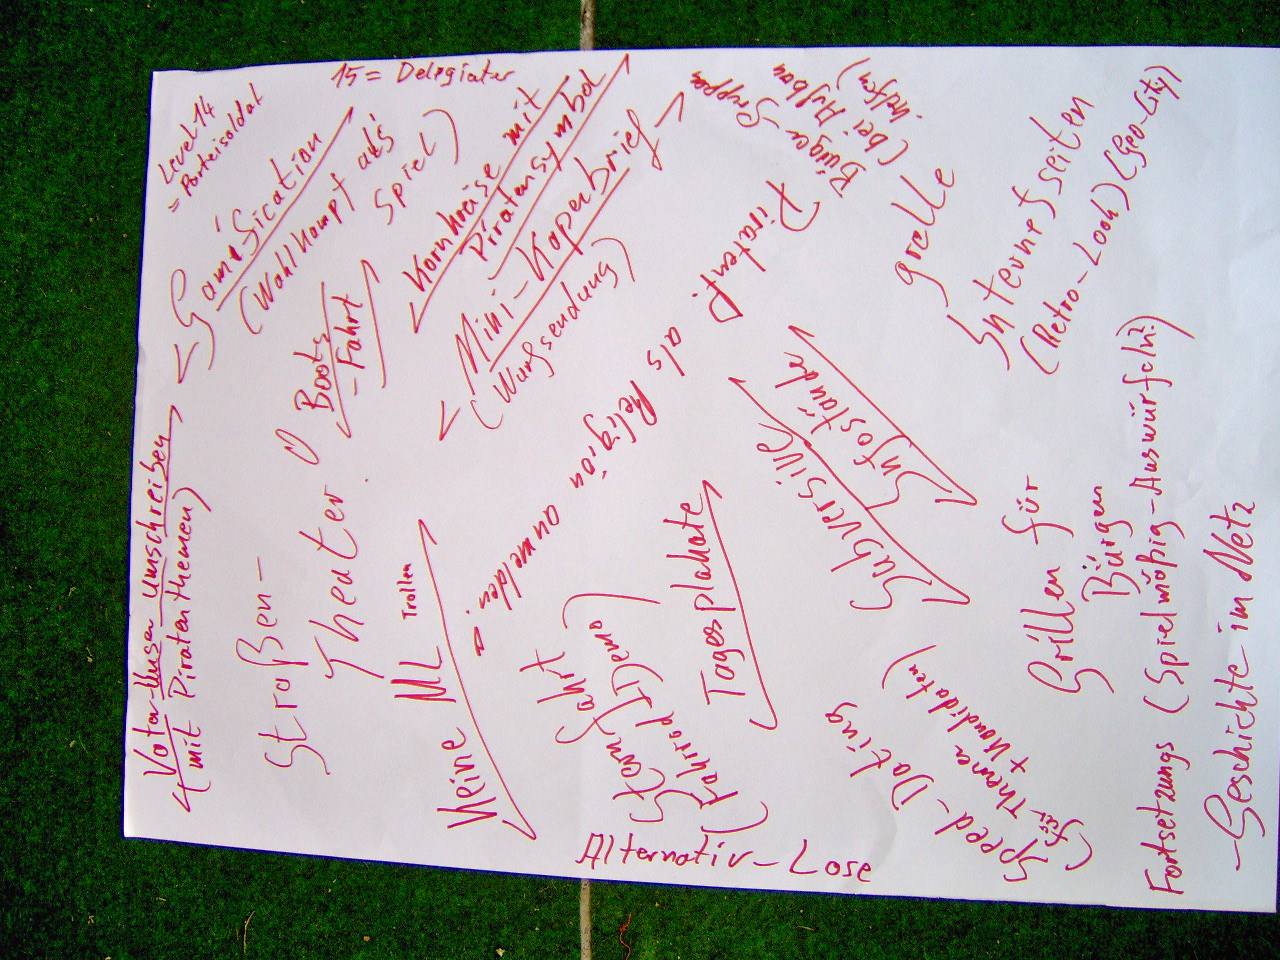 Level 14
= Parteisoldat
15 = Delegiater
Gamification
(Wahlkampf als
Spiel)
Kornkreise mit
Piratensymbol
Mini-Kaperbrief
(Wurfsendung)
Boots
-Fahrt
Vater Unser umschreiben
(mit Piratenthemen)
Straßen-
Theater
Keine ML
Trollen
Piratent.
als
Religion
anmelden.
Bürger-Gruppen
(bei Aufbau
helfen)
grelle
Internetseiten
(Retro-Look) (Geo-City)
Subversive
Infostände
Tagesplakate
Sternfahrt
(Fahrrad) (Demo)
Grillen für
Bürger
Speed-Dating
(für Themen
+ Kandidaten)
Alternativ-Lose
Fortsetzungs (Spielmäßig-Auswürfeln?)
-Geschichte im Netz